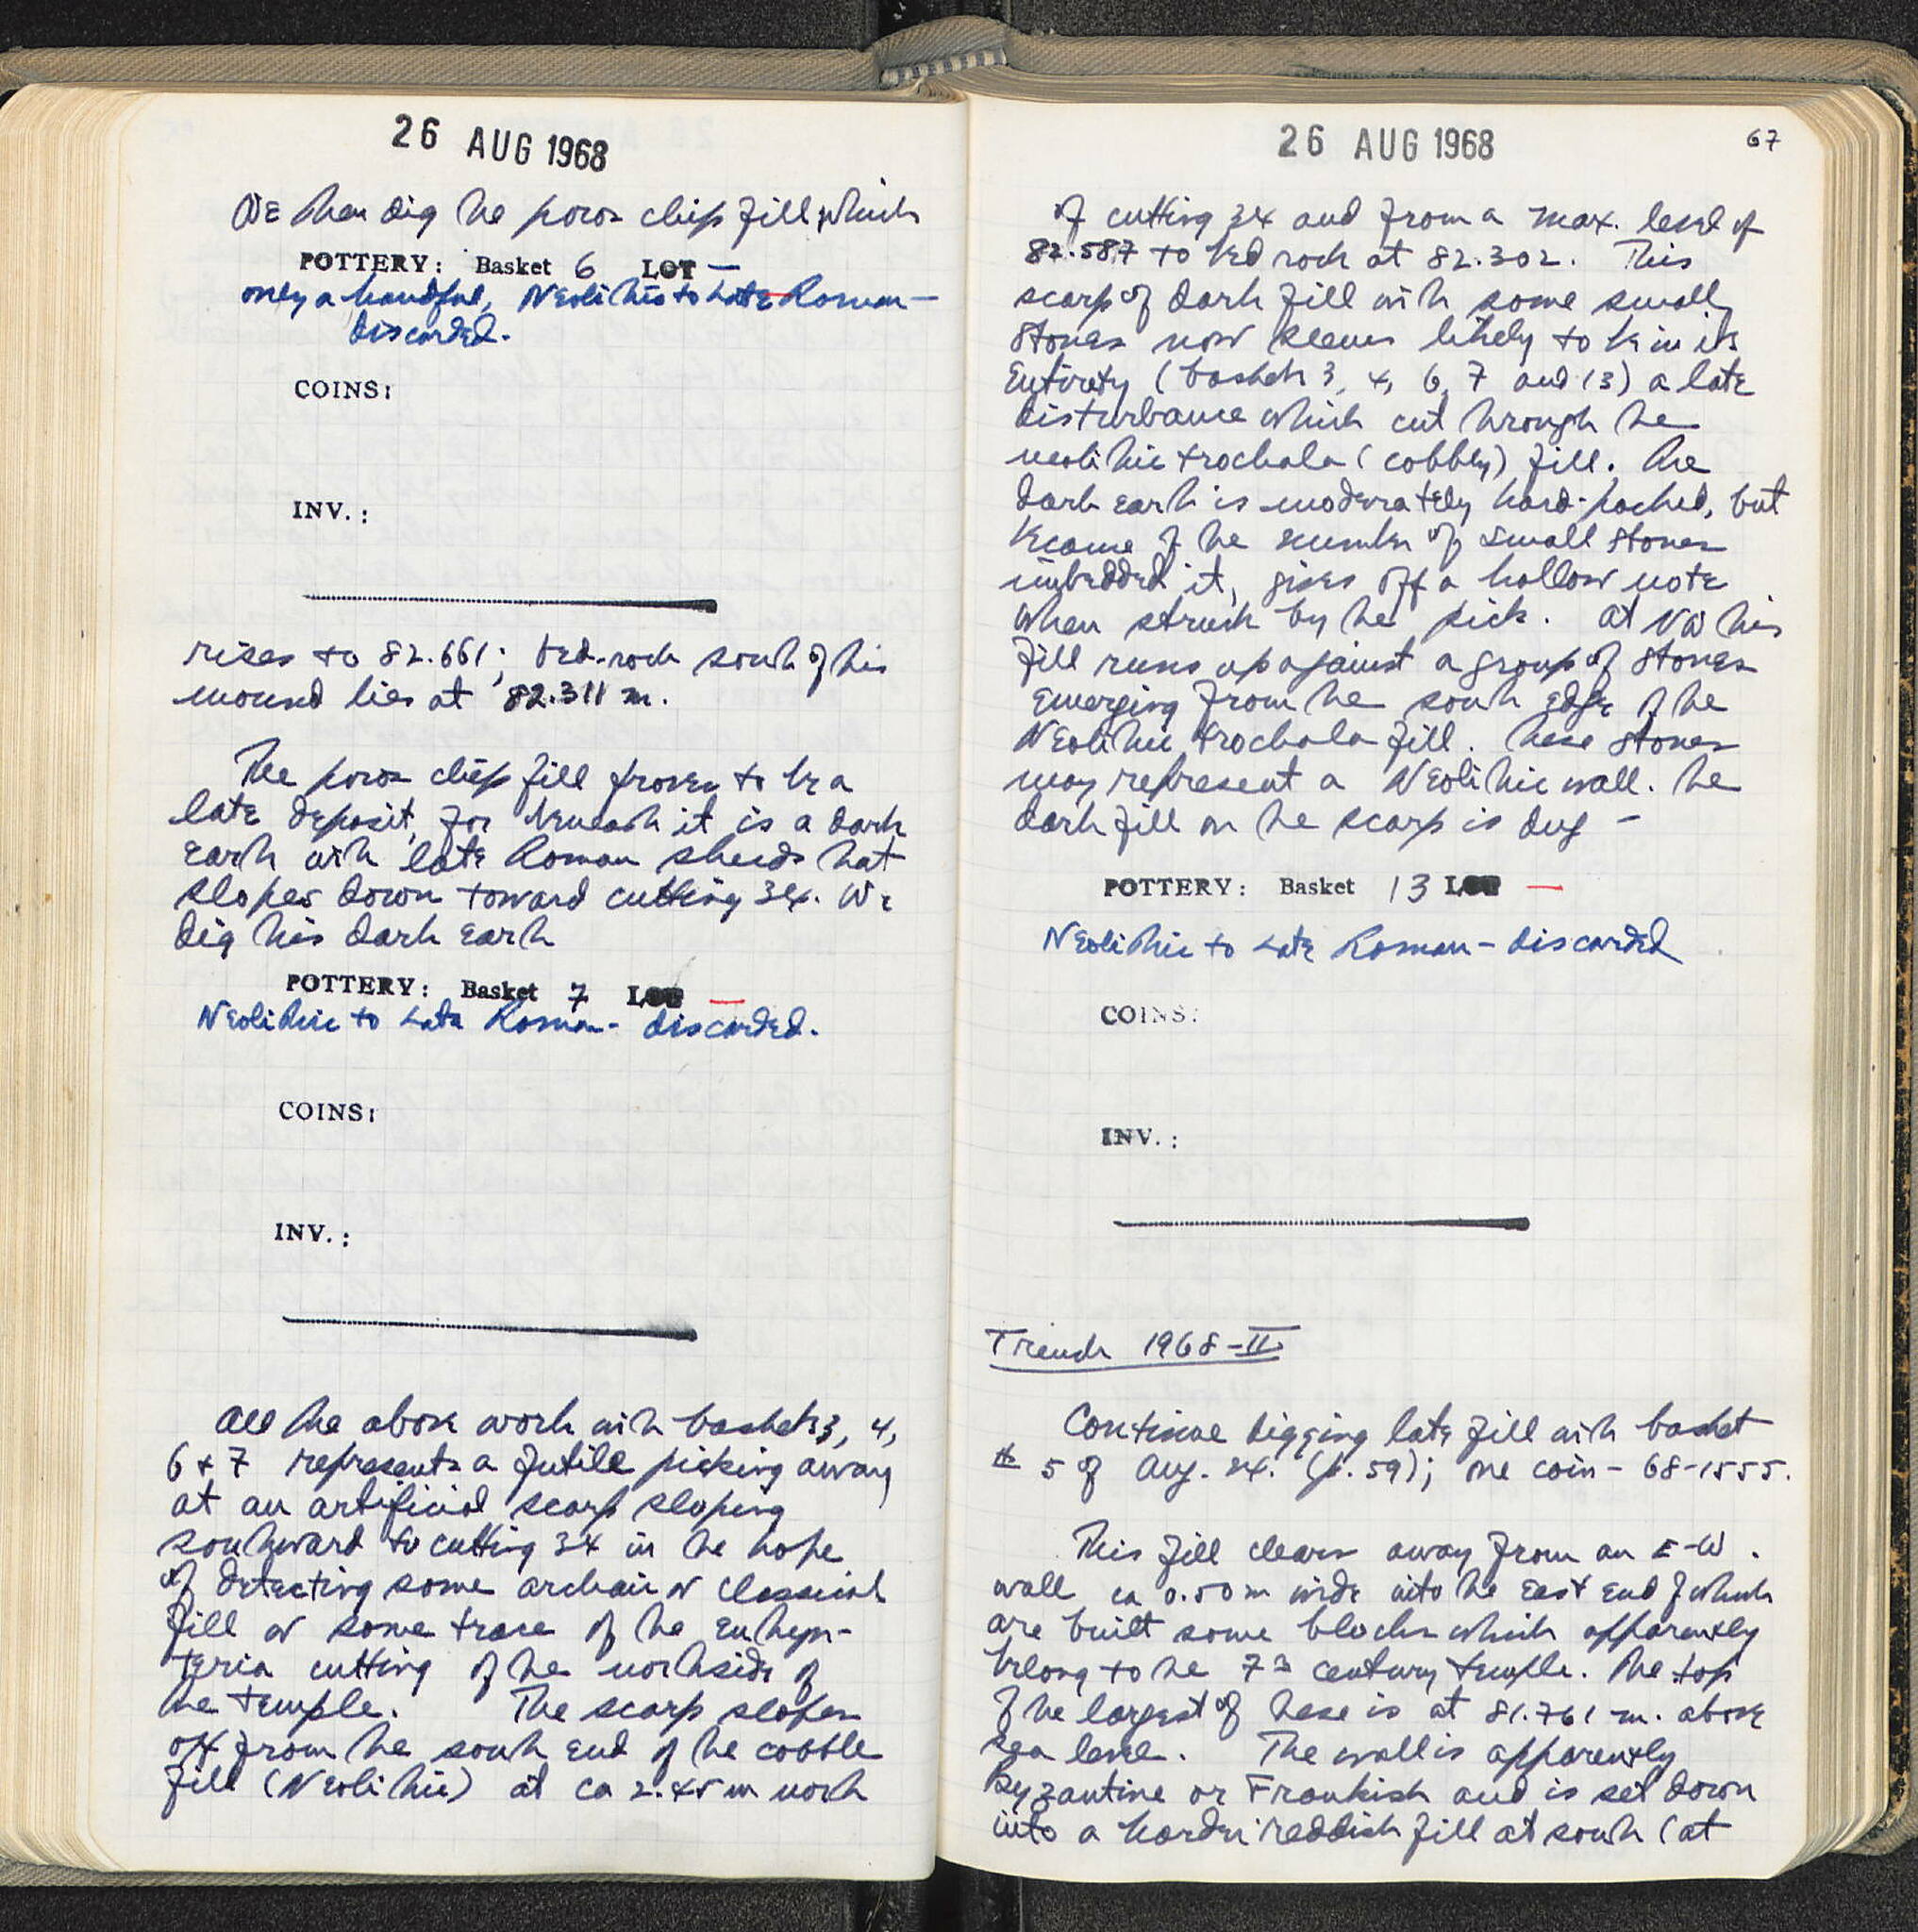 26 AUG 1968
We then dig the poros chip fill which
POTTERY: Basket 6 LOT —
only a handful, Neolithic to Late Roman —
discarded.
COINS:
INV. :
rises to 82.661; bed-rock south of this
mound lies at 82.311 m.
The poros chip fill proves to be a
late deposit, for beneath it is a dark
earth with late Roman sherds that
slopes down toward cutting 34. We
dig this dark earth
POTTERY: Basket 7 LOT —
Neolithic to Late Roman - discarded.
COINS:
INV. :
All the above work with baskets 3, 4,
6 + 7 represents a futile picking away
at an artificial scarp sloping
southward to cutting 34 in the hope
of detecting some archaic or classical
fill or some trace of the euthyn-
teria cutting of the north side of
the temple. The scarp slopes
off from the south end of the cobble
fill (Neolithic) at ca 2.45 m north
26 AUG 1968
67
of cutting 34 and from a max. level of
82.587 to bed rock at 82.302. This
scarp of dark fill with some small
stones now seems likely to be in its
entirety (baskets 3, 4, 6, 7 and 13) a late
disturbance which cut through the
neolithic trochala (cobbly) fill. The
dark earth is moderately hard-packed, but
because of the number of small stones
imbedded it, gives off a hollow note
when struck by the pick. At NW this
fill runs up against a group of stones
emerging from the south edge of the
Neolithic trochala fill. These stones
may represent a Neolithic wall. The
dark fill on the scarp is dug —
POTTERY: Basket 13 LOT —
Neolithic to Late Roman - discarded
COINS:
INV. :
Trench 1968-II
Continue digging late fill with basket
# 5 of Aug. 24. (p. 59); one coin - 68-1555.
This fill clears away from an E-W
wall ca 0.50 m wide into the east end of which
are built some blocks which apparently
belong to the 7th century temple. The top
of the largest of these is at 81.761 m. above
sea level. The wall is apparently
Byzantine or Frankish and is set down
into a harder reddish fill at south (at